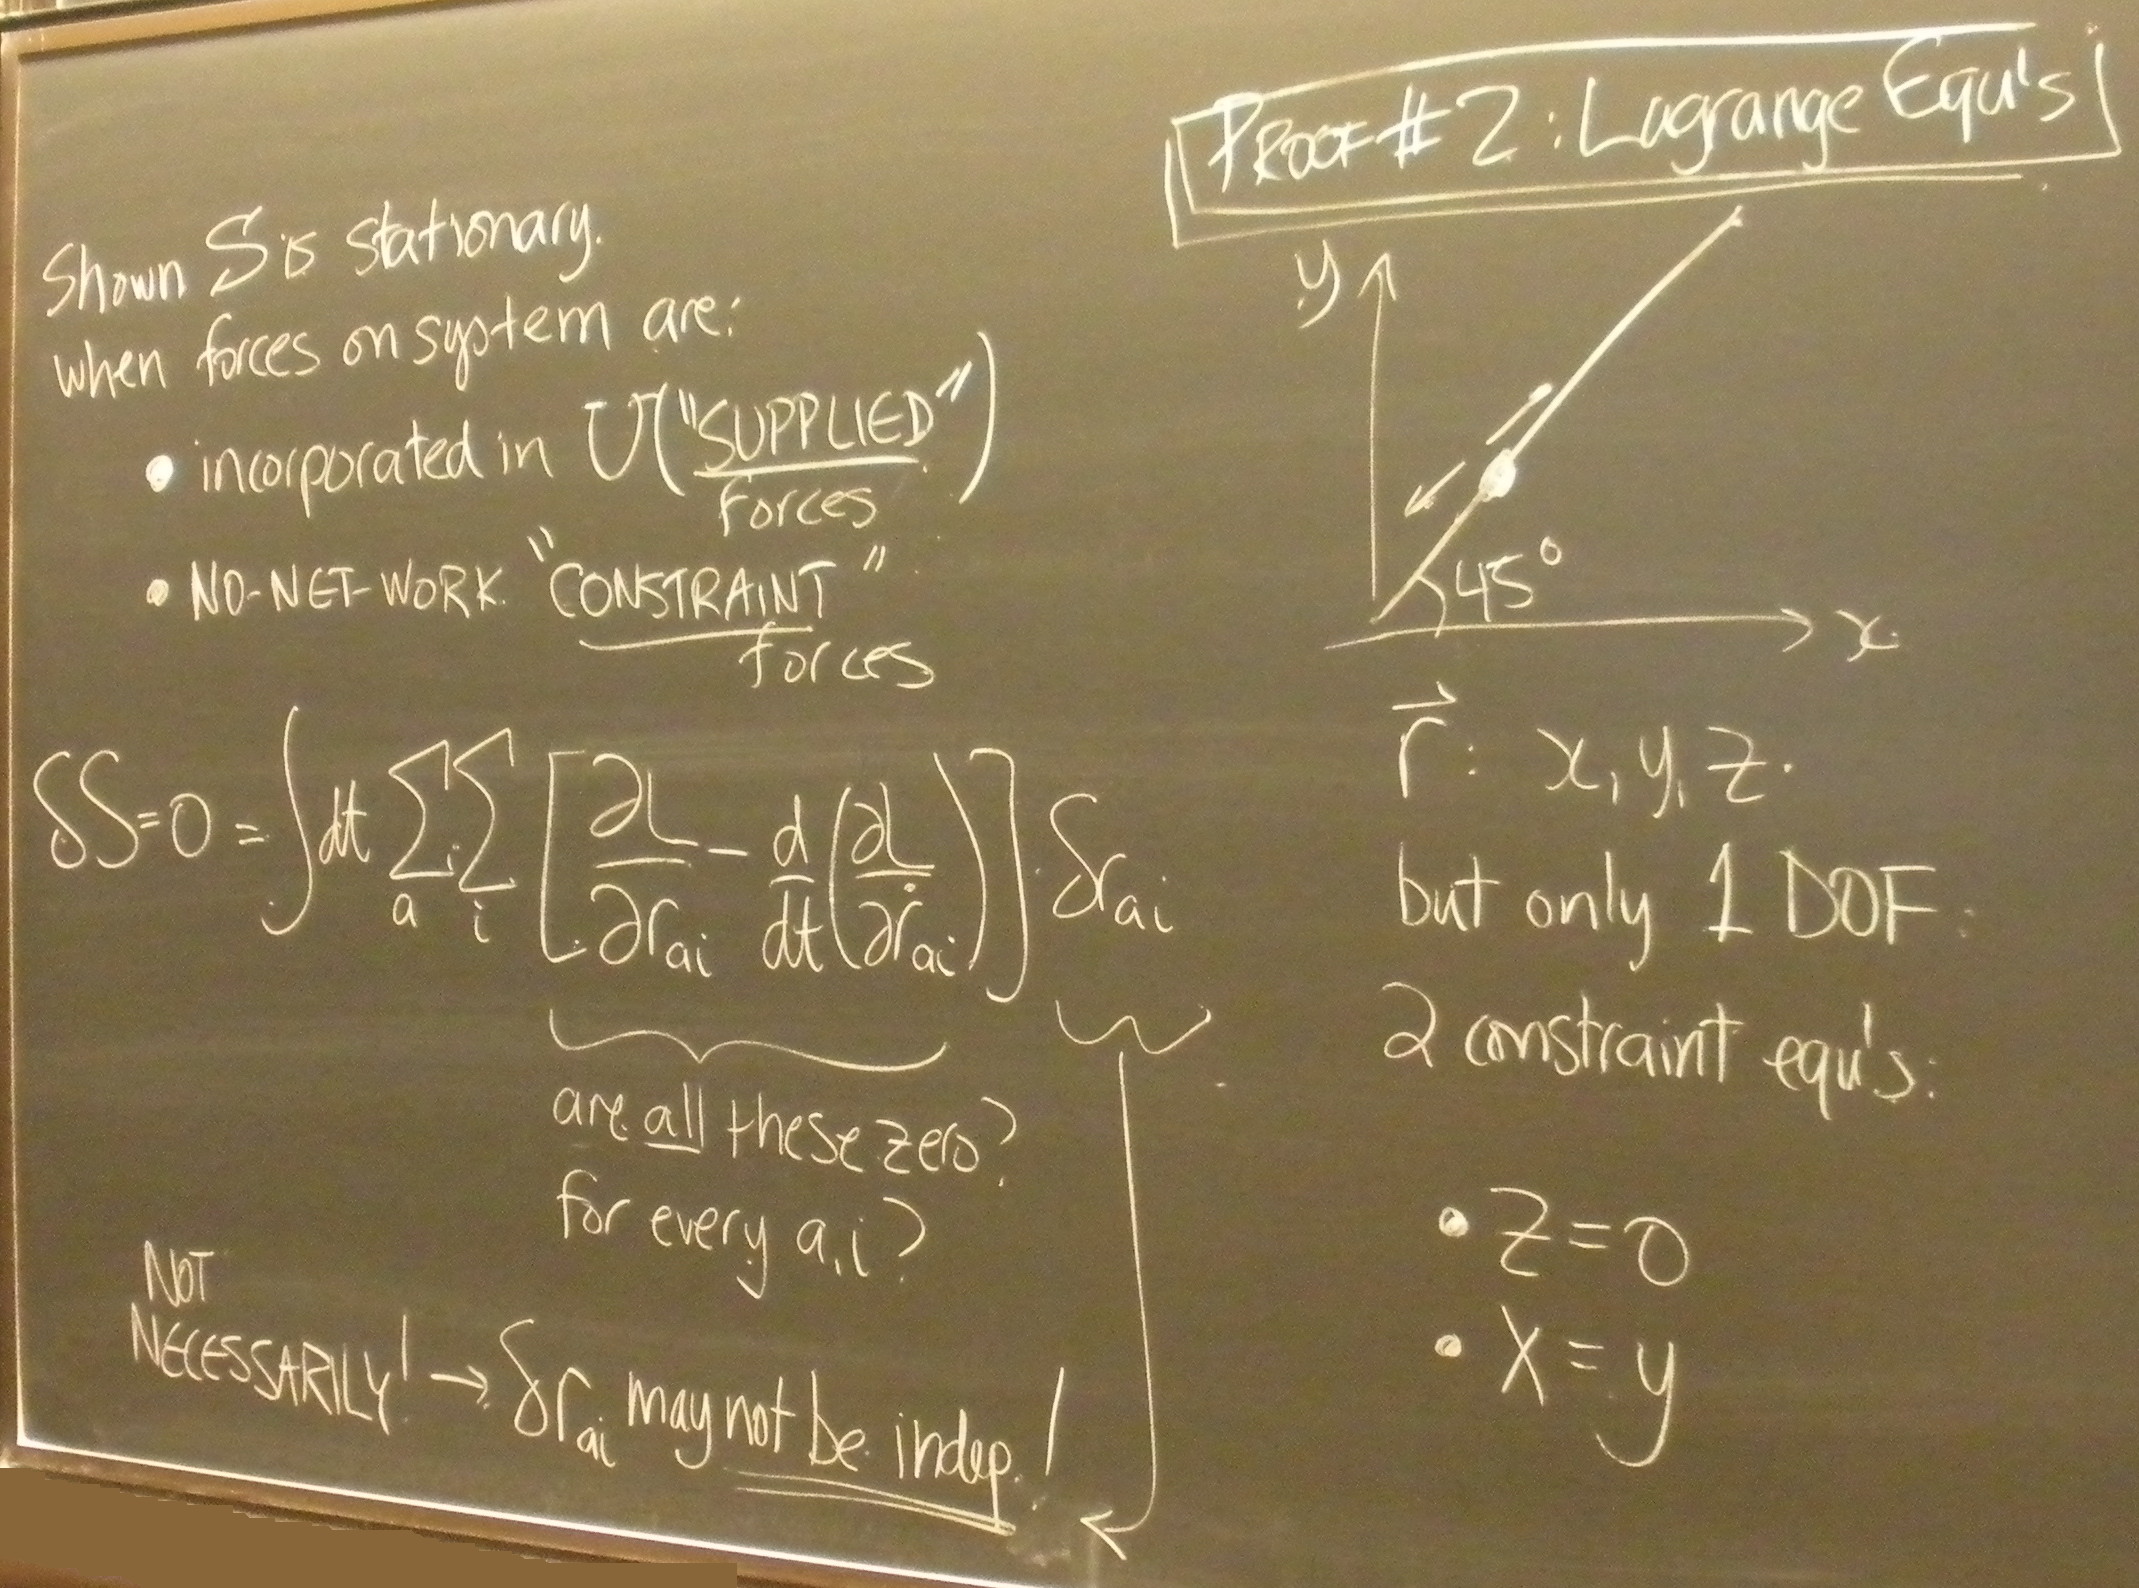 Shown S is stationary.
when forces on system are:
• incorporated in U("SUPPLIED")
Forces
• NO-NET-WORK "CONSTRAINT"
forces
δS=0 = ∫dt Σ_a Σ_i [∂L/∂r_ai - d/dt(∂L/∂ṙ_ai)] · δr_ai
are all these zero?
for every a,i?
NOT
NECESSARILY! → δr_ai may not be indep.!
PROOF #2: Lagrange Equ's
y
45°
x
r⃗: x, y, z.
but only 1 DOF:
2 constraint equ's:
• z=0
• x=y